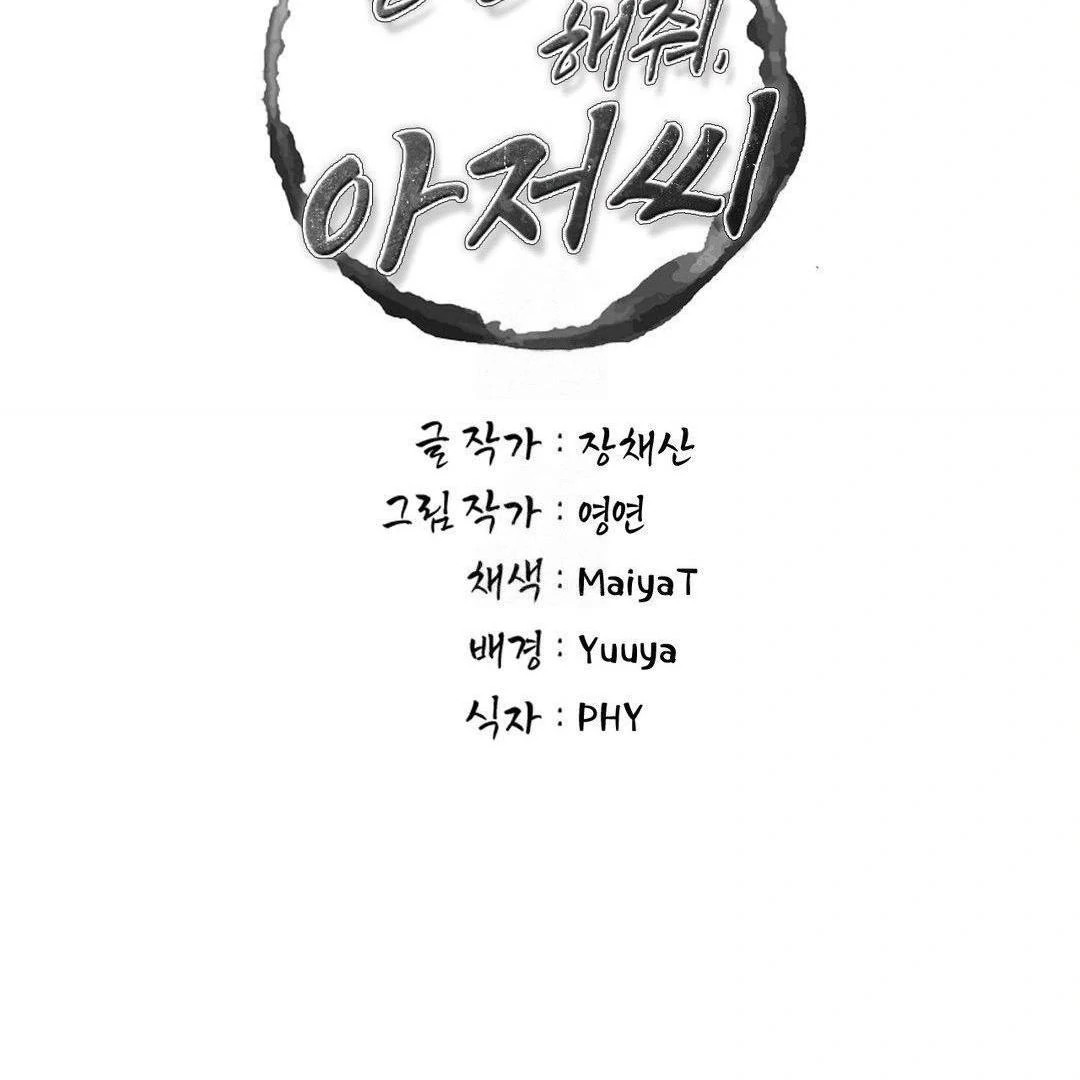 해줘,
아저씨
글 작가 : 장채산
그림 작가 : 영연
채색 : MaiyaT
배경 : Yuuya
식자 : PHY